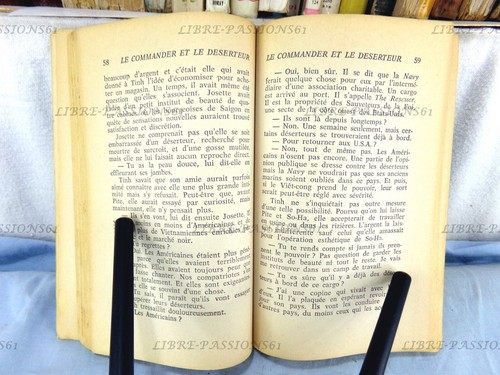 LIBRE-PASSIONS61
58 LE COMMANDER ET LE DESERTEUR
beaucoup d'argent et c'était elle qui avait
donné à Tinh l'idée d'économiser pour ache-
ter un magasin. Un temps, il avait même été
question qu'elles s'associent. Josette avait
l'idée d'un petit institut de beauté de qua-
où les bourgeoises de Saigon en
quête de sensations nouvelles auraient trouvé
satisfaction et discrétion.
Josette ne comprenait pas qu'elle se soit
embarrassée d'un déserteur, recherché pour
meurtre de surcroît, et d'une gosse mutilée,
mais elle ne lui faisait aucun reproche direct.
— Tu as la peau douce, lui dit-elle en
effleurant ses jambes.
Tinh savait que son amie aurait parfois
aimé connaître avec elle une plus grande inti-
mité mais s'y refusait. Peut-être que, avant
Pite, elle aurait essayé par curiosité, mais
maintenant, elle n'y pensait plus.
Ils s'en vont, lui dit ensuite Josette. Il
moins en moins d'Américains et de
de Vietnamiennes enrichies
et le marché noir.
regrettes ?
Les Américains étaient plus
parce qu'elles avaient terriblement
Elles avaient toujours peur
humer. Nos compatriotes n'ont
Et elles sont exigeantes
se priver d'une chose.
sais, il paraît qu'ils vont essayer
rapatrier leurs déserteurs.
tressaillit douloureusement.
Les Américains ?
LE COMMANDER ET LE DESERTEUR 59
— Oui, bien sûr. Il se dit que la Navy
ferait quelque chose pour eux par l'intermé-
diaire d'une association charitable. Un cargo
est arrivé au port. Il s'appelle The Rescuer.
Il est la propriété des Sauveteurs de la Foi,
une secte de la côte ouest des Etats-Unis.
— Ils sont là depuis longtemps ?
— Non. Une semaine seulement, mais cer-
tains déserteurs se trouveraient déjà à bord.
— Pour retourner aux U.S.A. ?
— Non, tout de même pas. Les Améri-
cains n'osent pas encore. Une partie de l'opi-
nion publique se dresse contre les déserteurs
mais la Navy ne voudrait pas que ses anciens
marins soient oubliés dans ce pays. Et puis,
si le Viêt-cong prend le pouvoir, leur sort
serait peut-être réglé avec sévérité.
Tinh ne s'inquiétait pas outre mesure
d'une telle possibilité. Pourvu qu'on lui laisse
Pite et So-Ha, elle accepterait de travailler
en usine ou dans les rizières. L'argent la lais-
sait indifférente sauf celui qu'elle amassait
pour l'opération esthétique de So-Ha.
— Tu te rends compte si jamais ils pren-
nent le pouvoir ? Pas question de garder les
instituts de beauté ni tout le reste. Je vais
me retrouver dans un camp de travail.
— Tu es sûre qu'il y a déjà des
teurs à bord de ce cargo ?
— J'ai une copine qui vivait avec
d'eux. Il l'a plaquée en espérant revoir
jour son pays. Ils vont les conduire
d'autres pays, du moins ceux qui les
LIBRE-PASSIONS61